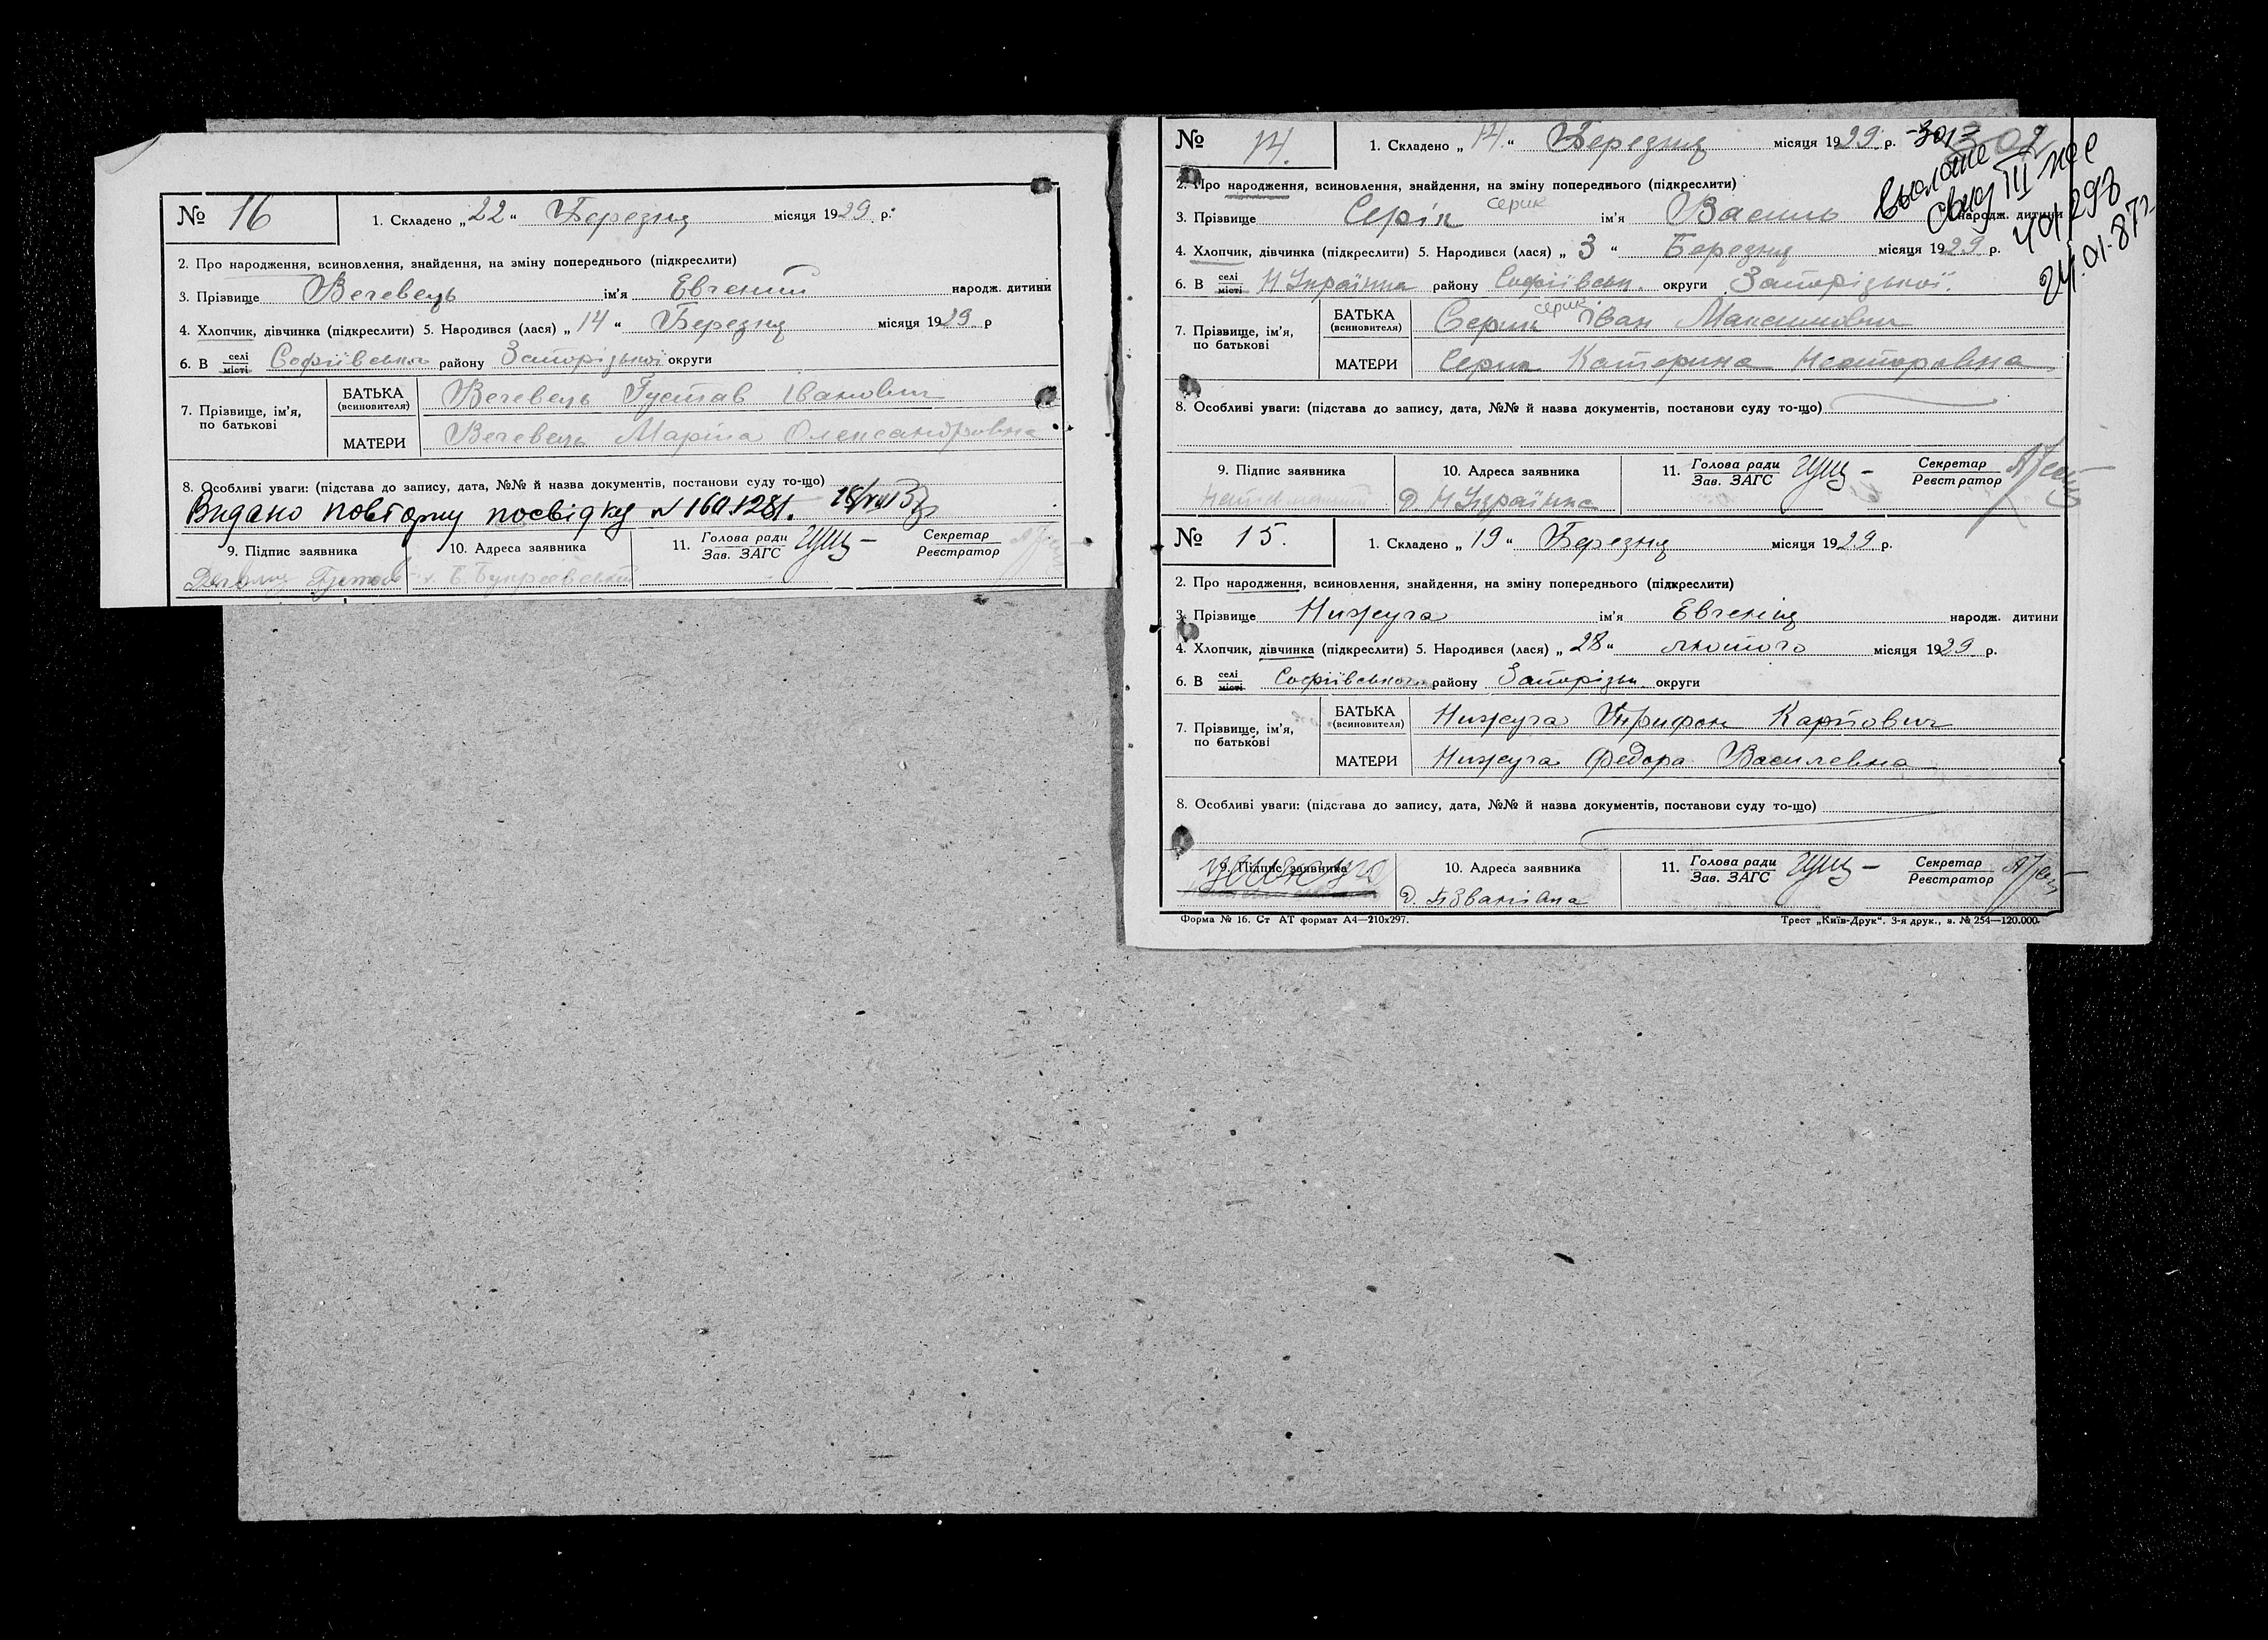 № 16
1. Складено „22“ Березня місяця 1929 р.
2. Про народження, всиновлення, знайдення, на зміну попереднього (підкреслити)
3. Прізвище Вегевець ім'я Евгений народж. дитини
4. Хлопчик, дівчинка (підкреслити) 5. Народився (лася) „14“ Березня місяця 1929 р
6. В селі місті Софіївська району Запорізької округи
7. Прізвище, ім'я, по батькові
БАТЬКА (всиновителя) Вегевець Густав Іванович
МАТЕРИ Вегевець Маріїа Олександровна
8. Особливі уваги: (підстава до запису, дата, №№ й назва документів, постанови суду то-що)
Видано повторну посвідку
9. Підпис заявника
10. Адреса заявника
11. Голова ради Зав. ЗАГС
Секретар Реєстратор
№ 14.
1. Складено „14.“ Березня місяця 1929 р.
2. Про народження, всиновлення, знайдення, на зміну попереднього (підкреслити)
3. Прізвище Серік Серик ім'я Василь народж. дитини
4. Хлопчик, дівчинка (підкреслити) 5. Народився (лася) „3“ Березня місяця 1929 р.
6. В селі місті Н Українка району Софіївськ. округи Запорізької.
7. Прізвище, ім'я, по батькові
БАТЬКА (всиновителя) Серик серик Іван Максимович
МАТЕРИ Серик Катерина Несторовна
8. Особливі уваги: (підстава до запису, дата, №№ й назва документів, постанови суду то-що)
9. Підпис заявника
10. Адреса заявника Д. Н Українка
11. Голова ради Зав. ЗАГС
Секретар Реєстратор
401298
24.01.87г.
№ 15.
1. Складено „19“ Березня місяця 1929 р.
2. Про народження, всиновлення, знайдення, на зміну попереднього (підкреслити)
3. Прізвище Нижуга ім'я Евгенія народж. дитини
4. Хлопчик, дівчинка (підкреслити) 5. Народився (лася) „28“ лютого місяця 1929 р.
6. В селі місті Софіївського району Запорізьк. округи
7. Прізвище, ім'я, по батькові
БАТЬКА (всиновителя) Нижуга Трифон Карпович
МАТЕРИ Нижуга Федора Василевна
8. Особливі уваги: (підстава до запису, дата, №№ й назва документів, постанови суду то-що)
9. Підпис заявника
10. Адреса заявника
11. Голова ради Зав. ЗАГС
Секретар Реєстратор
Форма № 16. Ст АТ формат А4—210х297.
Трест „Київ-Друк“. 3-я друк., з. № 254—120.000.